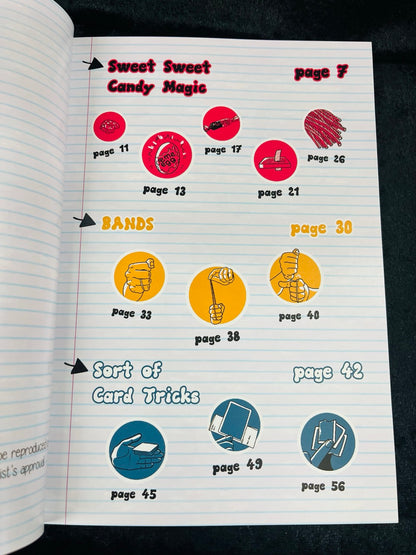 Sweet Sweet
Candy Magic
page 7
page 11
page 13
page 17
page 21
page 26
BANDS
page 30
page 33
page 38
page 40
Sort of
Card Tricks
page 42
page 45
page 49
page 56
be reproduced
ist's approval